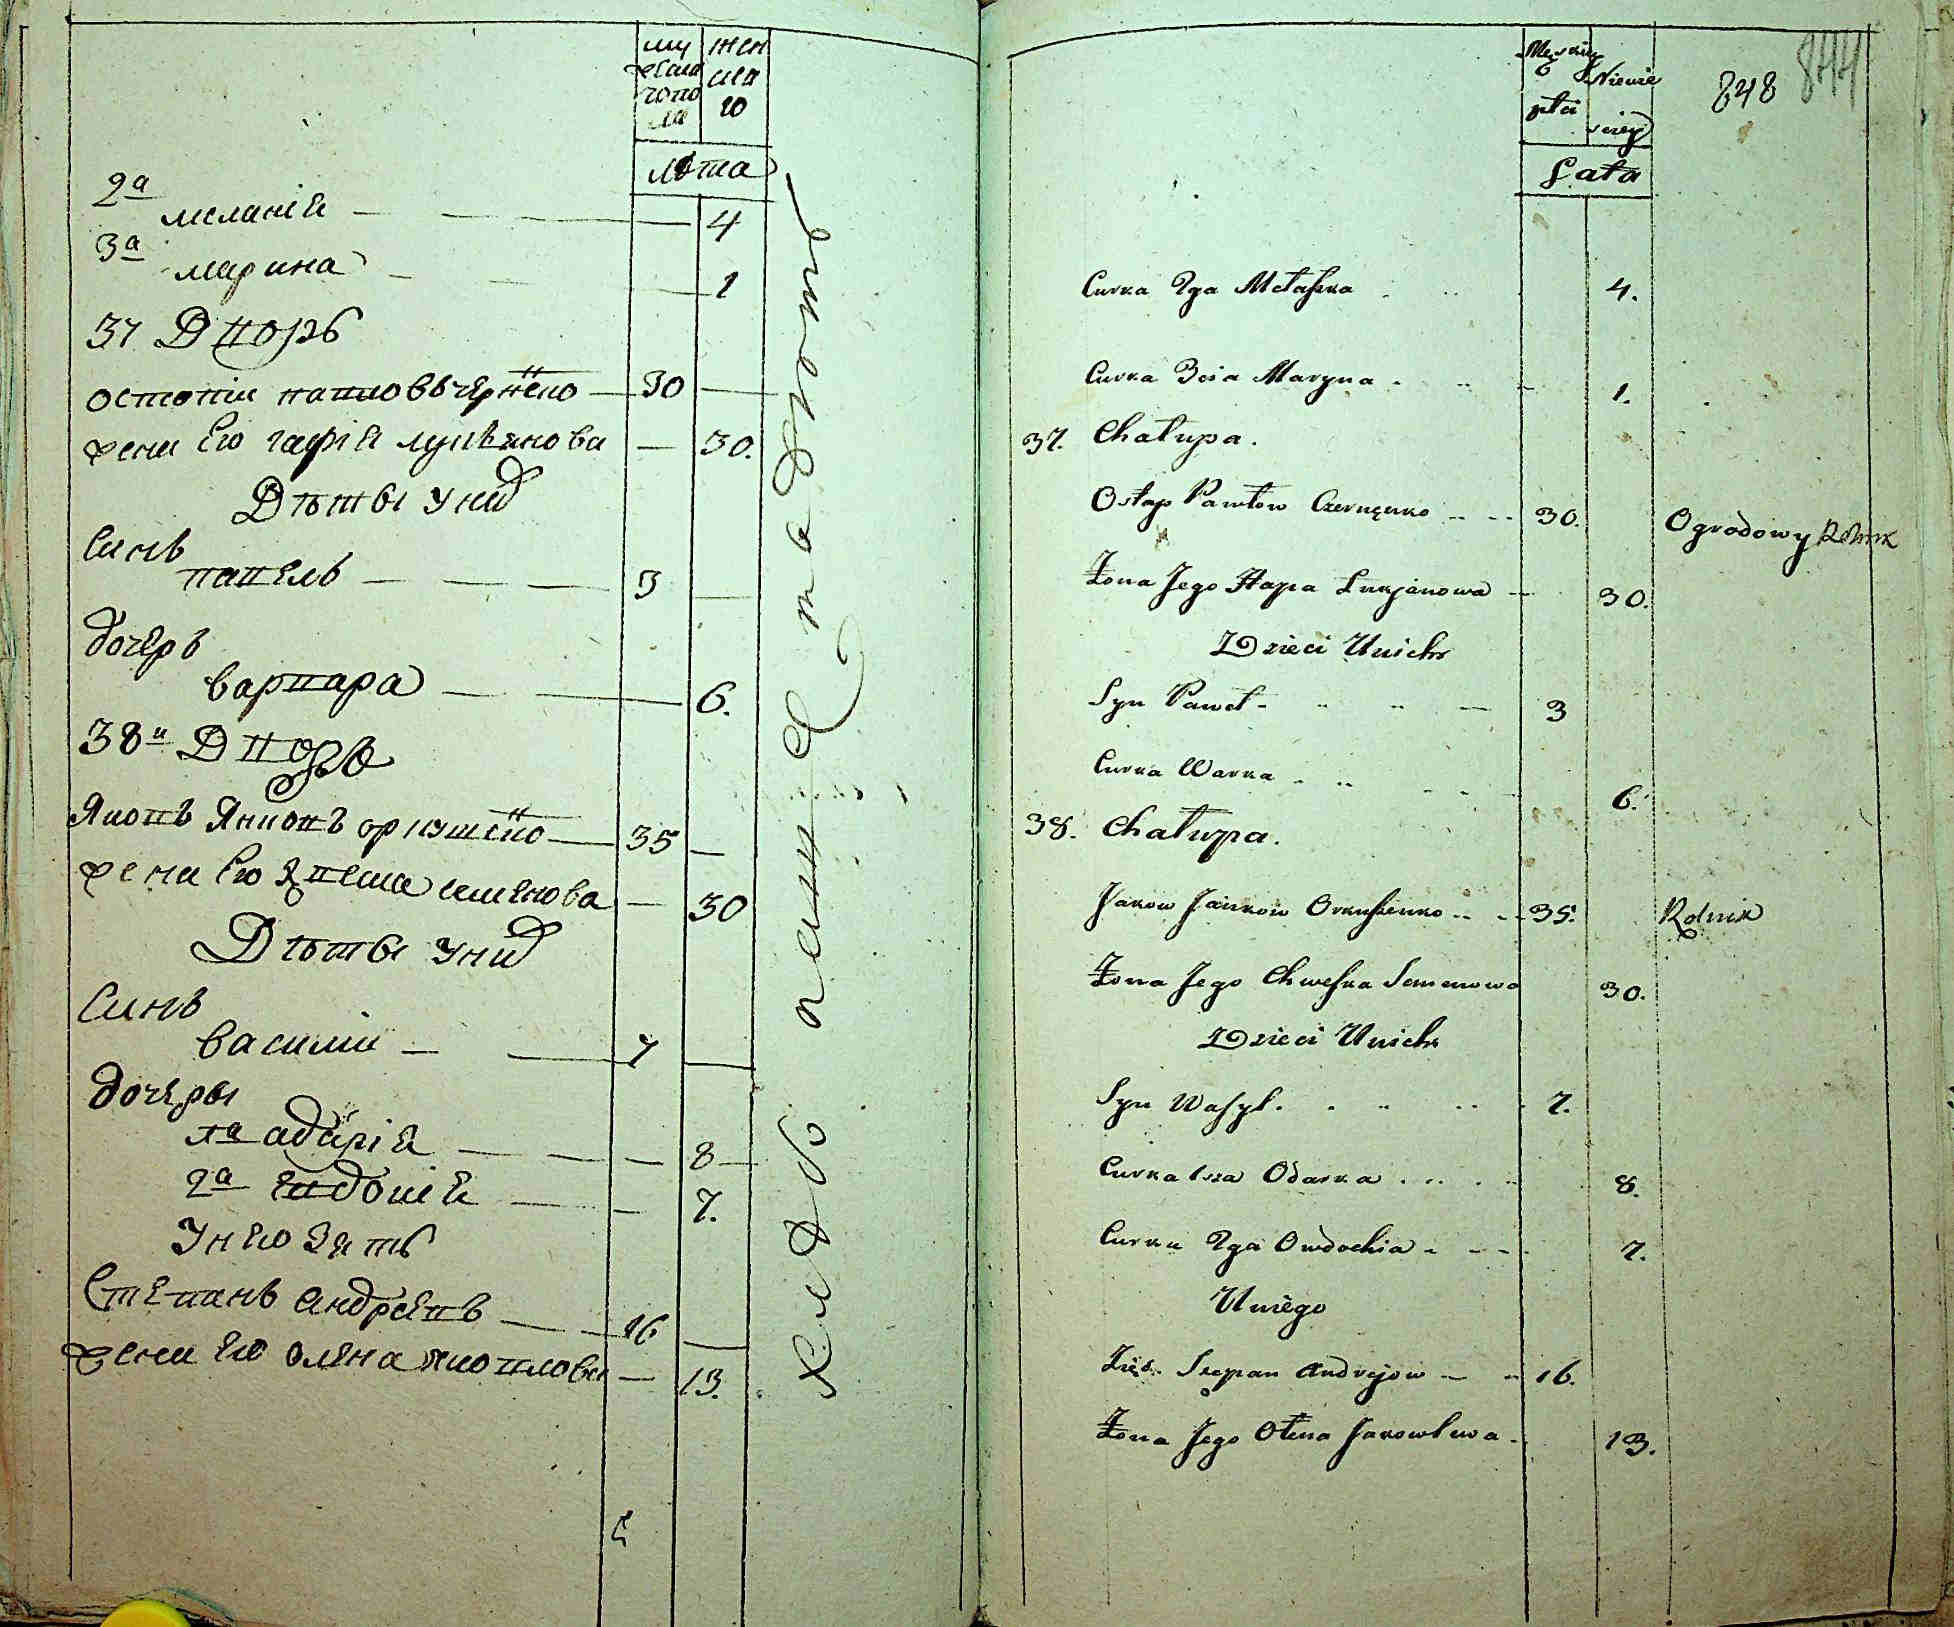 му женска
жеска го
гопо
ла
лѣта
2а
меланія 4
3а
марина 1
37 Дворъ
остапъ павловъ черненко 30
жена Его гафія лукянова 30.
Дѣты у нид
Синъ
павелъ 3
дочеръ
варвара 6.
38й Дворъ
Яковъ Янковъ оркушенко 35
жена Его Хвеска семенова 30
Дѣты у нид
Синъ
василий 7
дочеры
1а адария 8
2а Евдокия 7.
У него Зять
Степанъ андреевъ 16
жена Его олена яковлова 13.
Męskiey Niewie
płci sciey
Lata
848 844
Curka 2ga Mełaszka 4.
Curka 3cia Maryna 1.
37. Chałupa.
Ostap Pawłow Czernęnko 30. Ogrodowy Rolnik
Żona Jego Hapa Lukjanowa 30.
Dzieci Unich
Syn Paweł 3
Curka Warka 6.
38. Chałupa.
Jakow Jankow Orkuszenko 35. Rolnik
Żona Jego Chweska Semenowa 30.
Dzieci Unich
Syn Wasyl 7.
Curka 1sza Odarka 8.
Curka 2ga Owdochia 7.
Uniego
Zięć Szczepan Andrejow 16.
Żona Jego Ołena Jakowlowa 13.